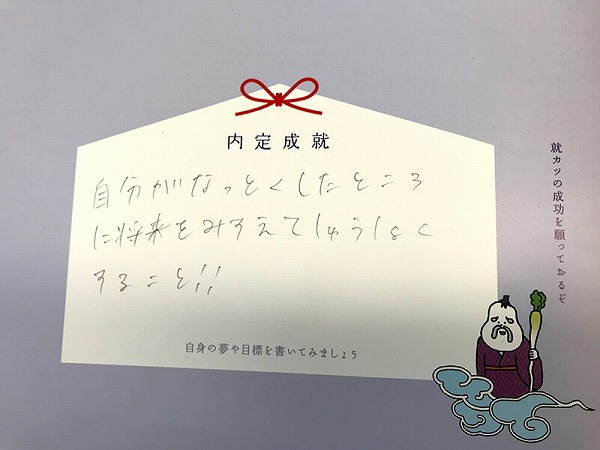 内定成就
自分がなっとくしたところ
に将来をみすえてしゅうしょく
すること!!
自身の夢や目標を書いてみましょう
就カツの成功を願っておるぞ